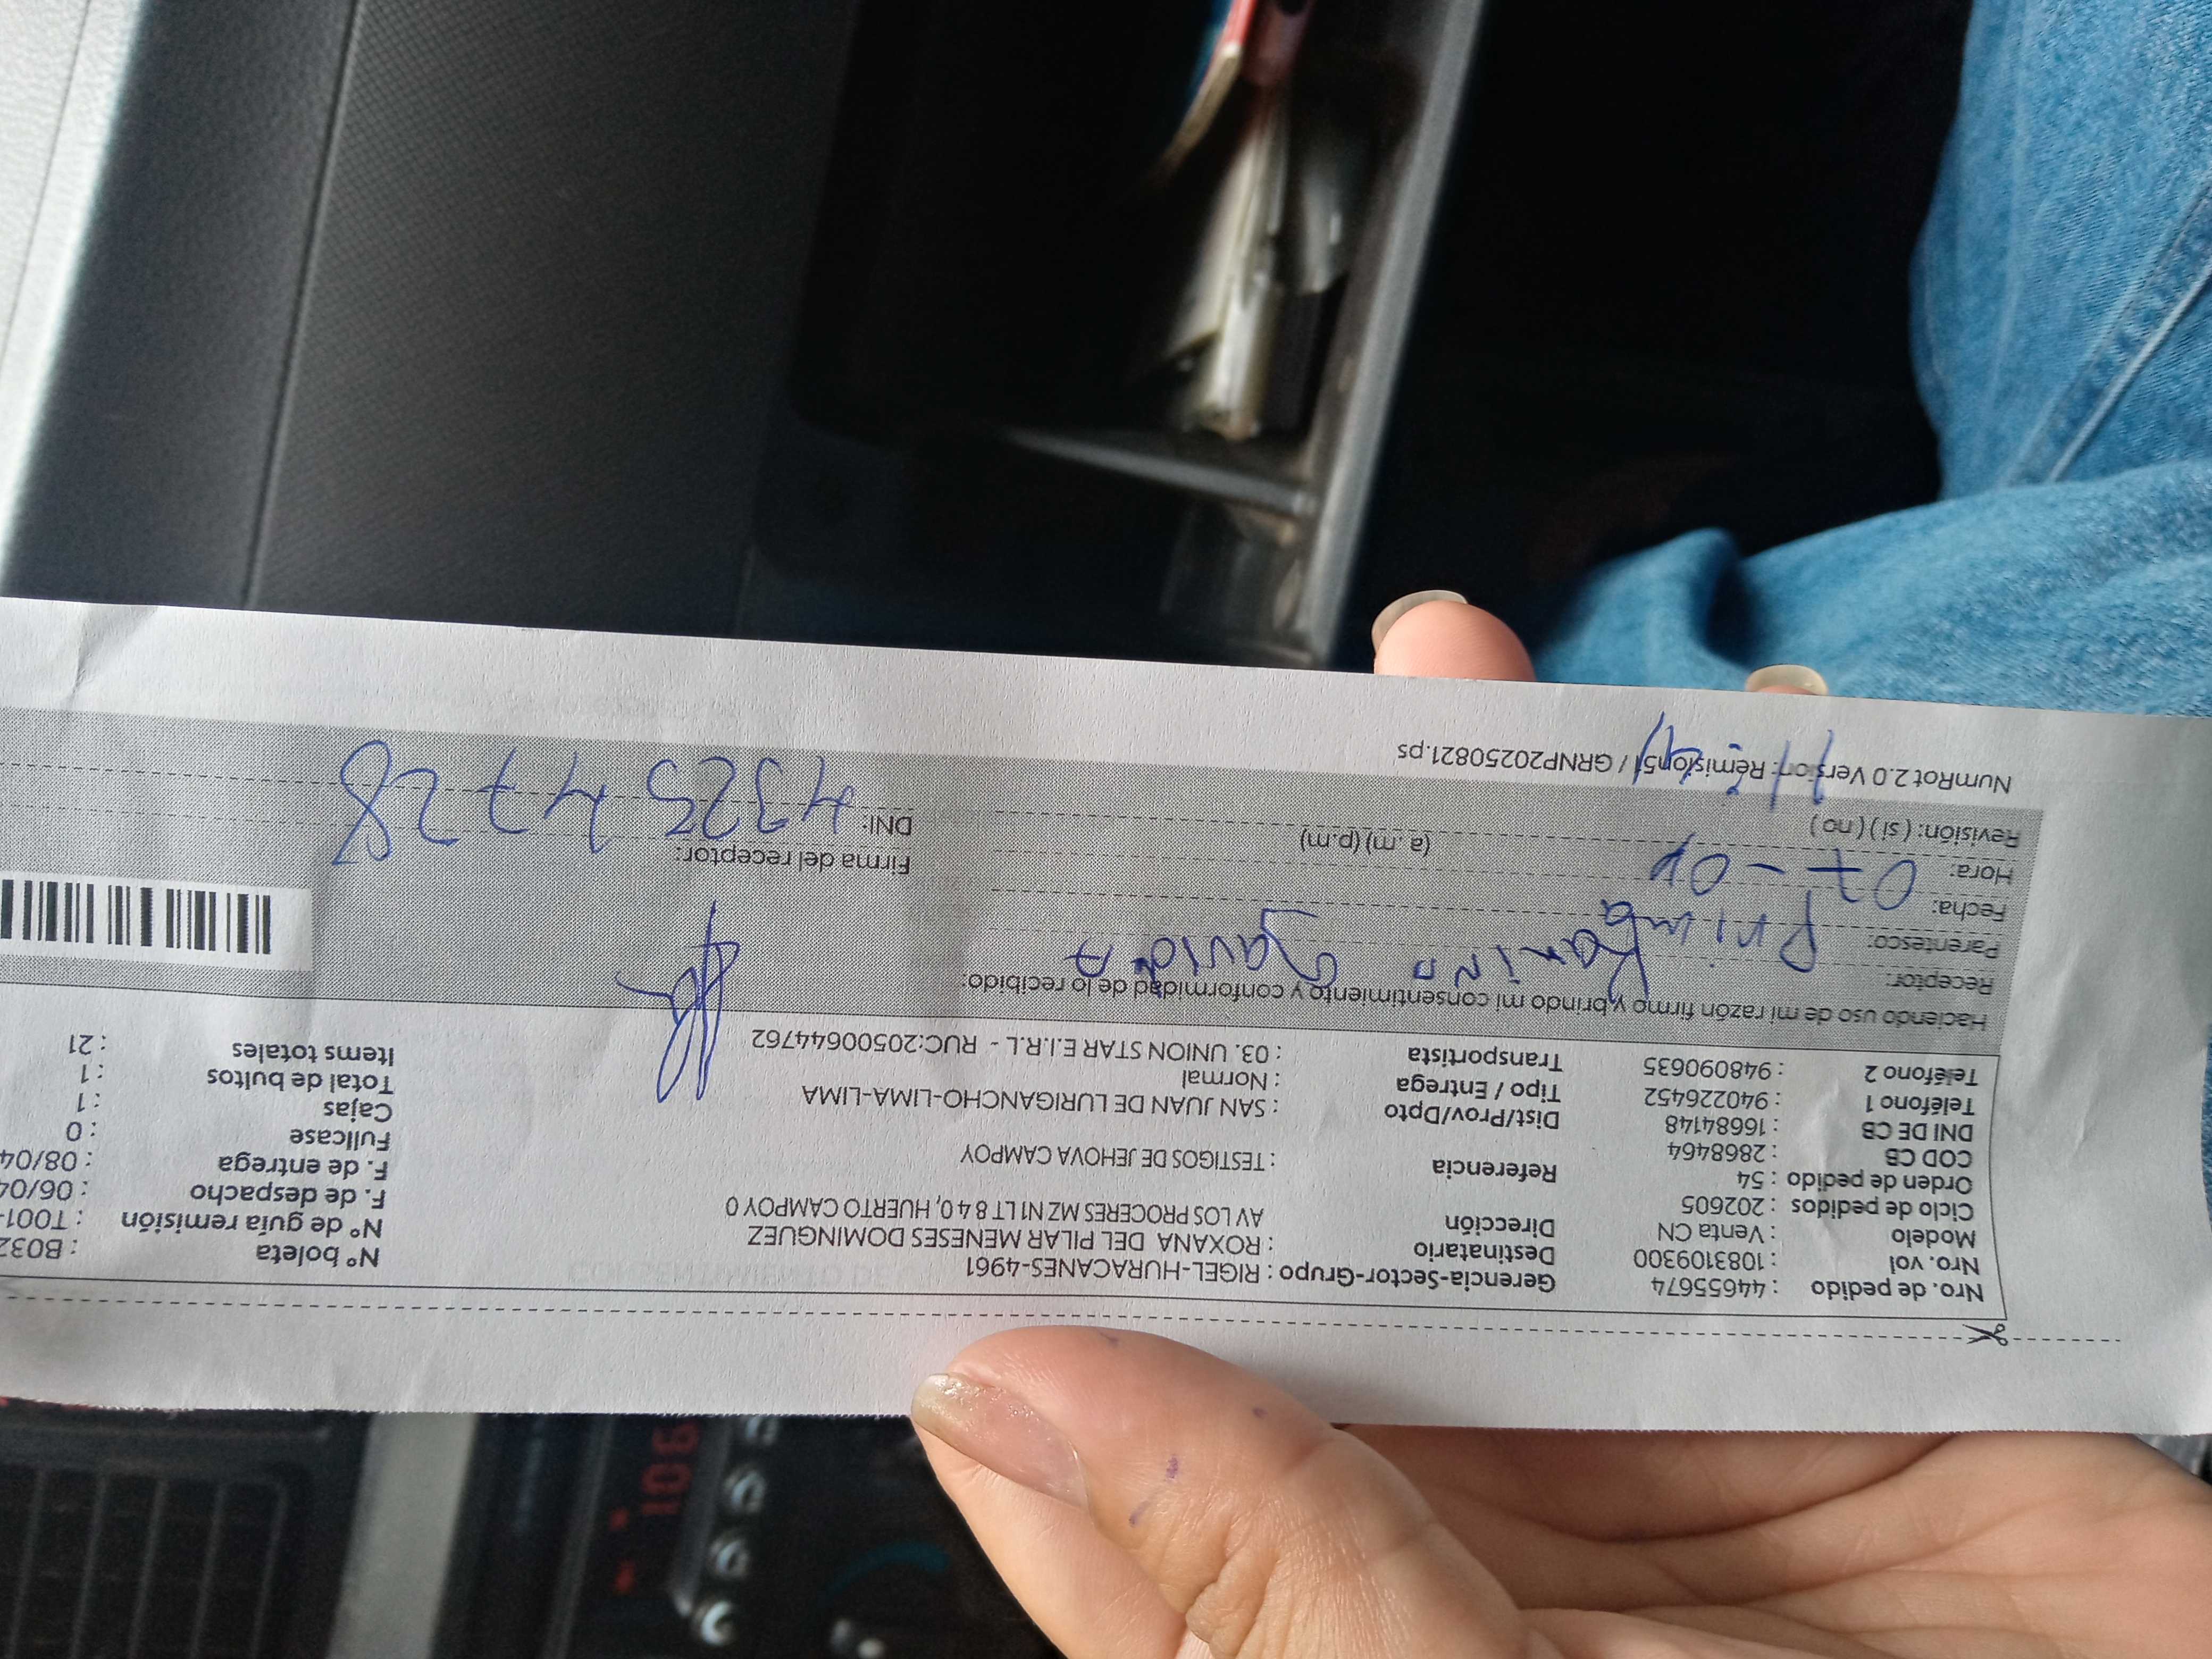 Nro. de pedido : 44655674
Nro. vol : 1083109300
Modelo : Venta CN
Ciclo de pedidos : 202605
Orden de pedido : 54
COD CB : 2868464
DNI DE CB : 16684148
Teléfono 1 : 940226452
Teléfono 2 : 948090635
Gerencia-Sector-Grupo : RIGEL-HURACANES-4961
Destinatario : ROXANA DEL PILAR MENESES DOMINGUEZ
Dirección AV LOS PROCERES MZ N1 LT 8 4 0, HUERTO CAMPOY 0
Referencia : TESTIGOS DE JEHOVA CAMPOY
Dist/Prov/Dpto : SAN JUAN DE LURIGANCHO-LIMA-LIMA
Tipo / Entrega : Normal
Transportista : 03. UNION STAR E.I.R.L - RUC:20500644762
N° boleta : B032
N° de guía remisión : T001-
F. de despacho : 06/04
F. de entrega : 08/04
Fullcase : 0
Cajas : 1
Total de bultos : 1
Items totales : 21
Haciendo uso de mi razón firmo y brindo mi consentimiento y conformidad de lo recibido:
Receptor: Ramiro
Parentesco: Prima
Fecha: 07-04
Hora: (a. m) (p.m)
Revisión: ( si ) ( no )
Firma del receptor:
DNI: 43254728
NumRot 2.0 Version: Remision51 / GRNP20250821.ps
106